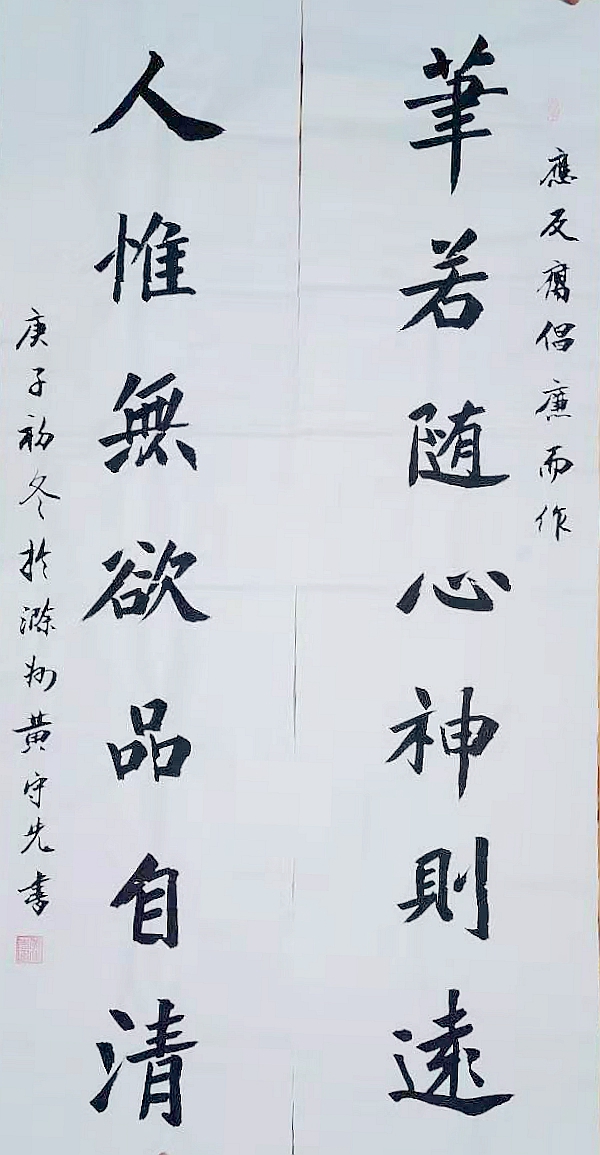 應反腐倡廉而作
筆若随心神則遠
人惟無欲品自清
庚子初冬於滁州黃守先書